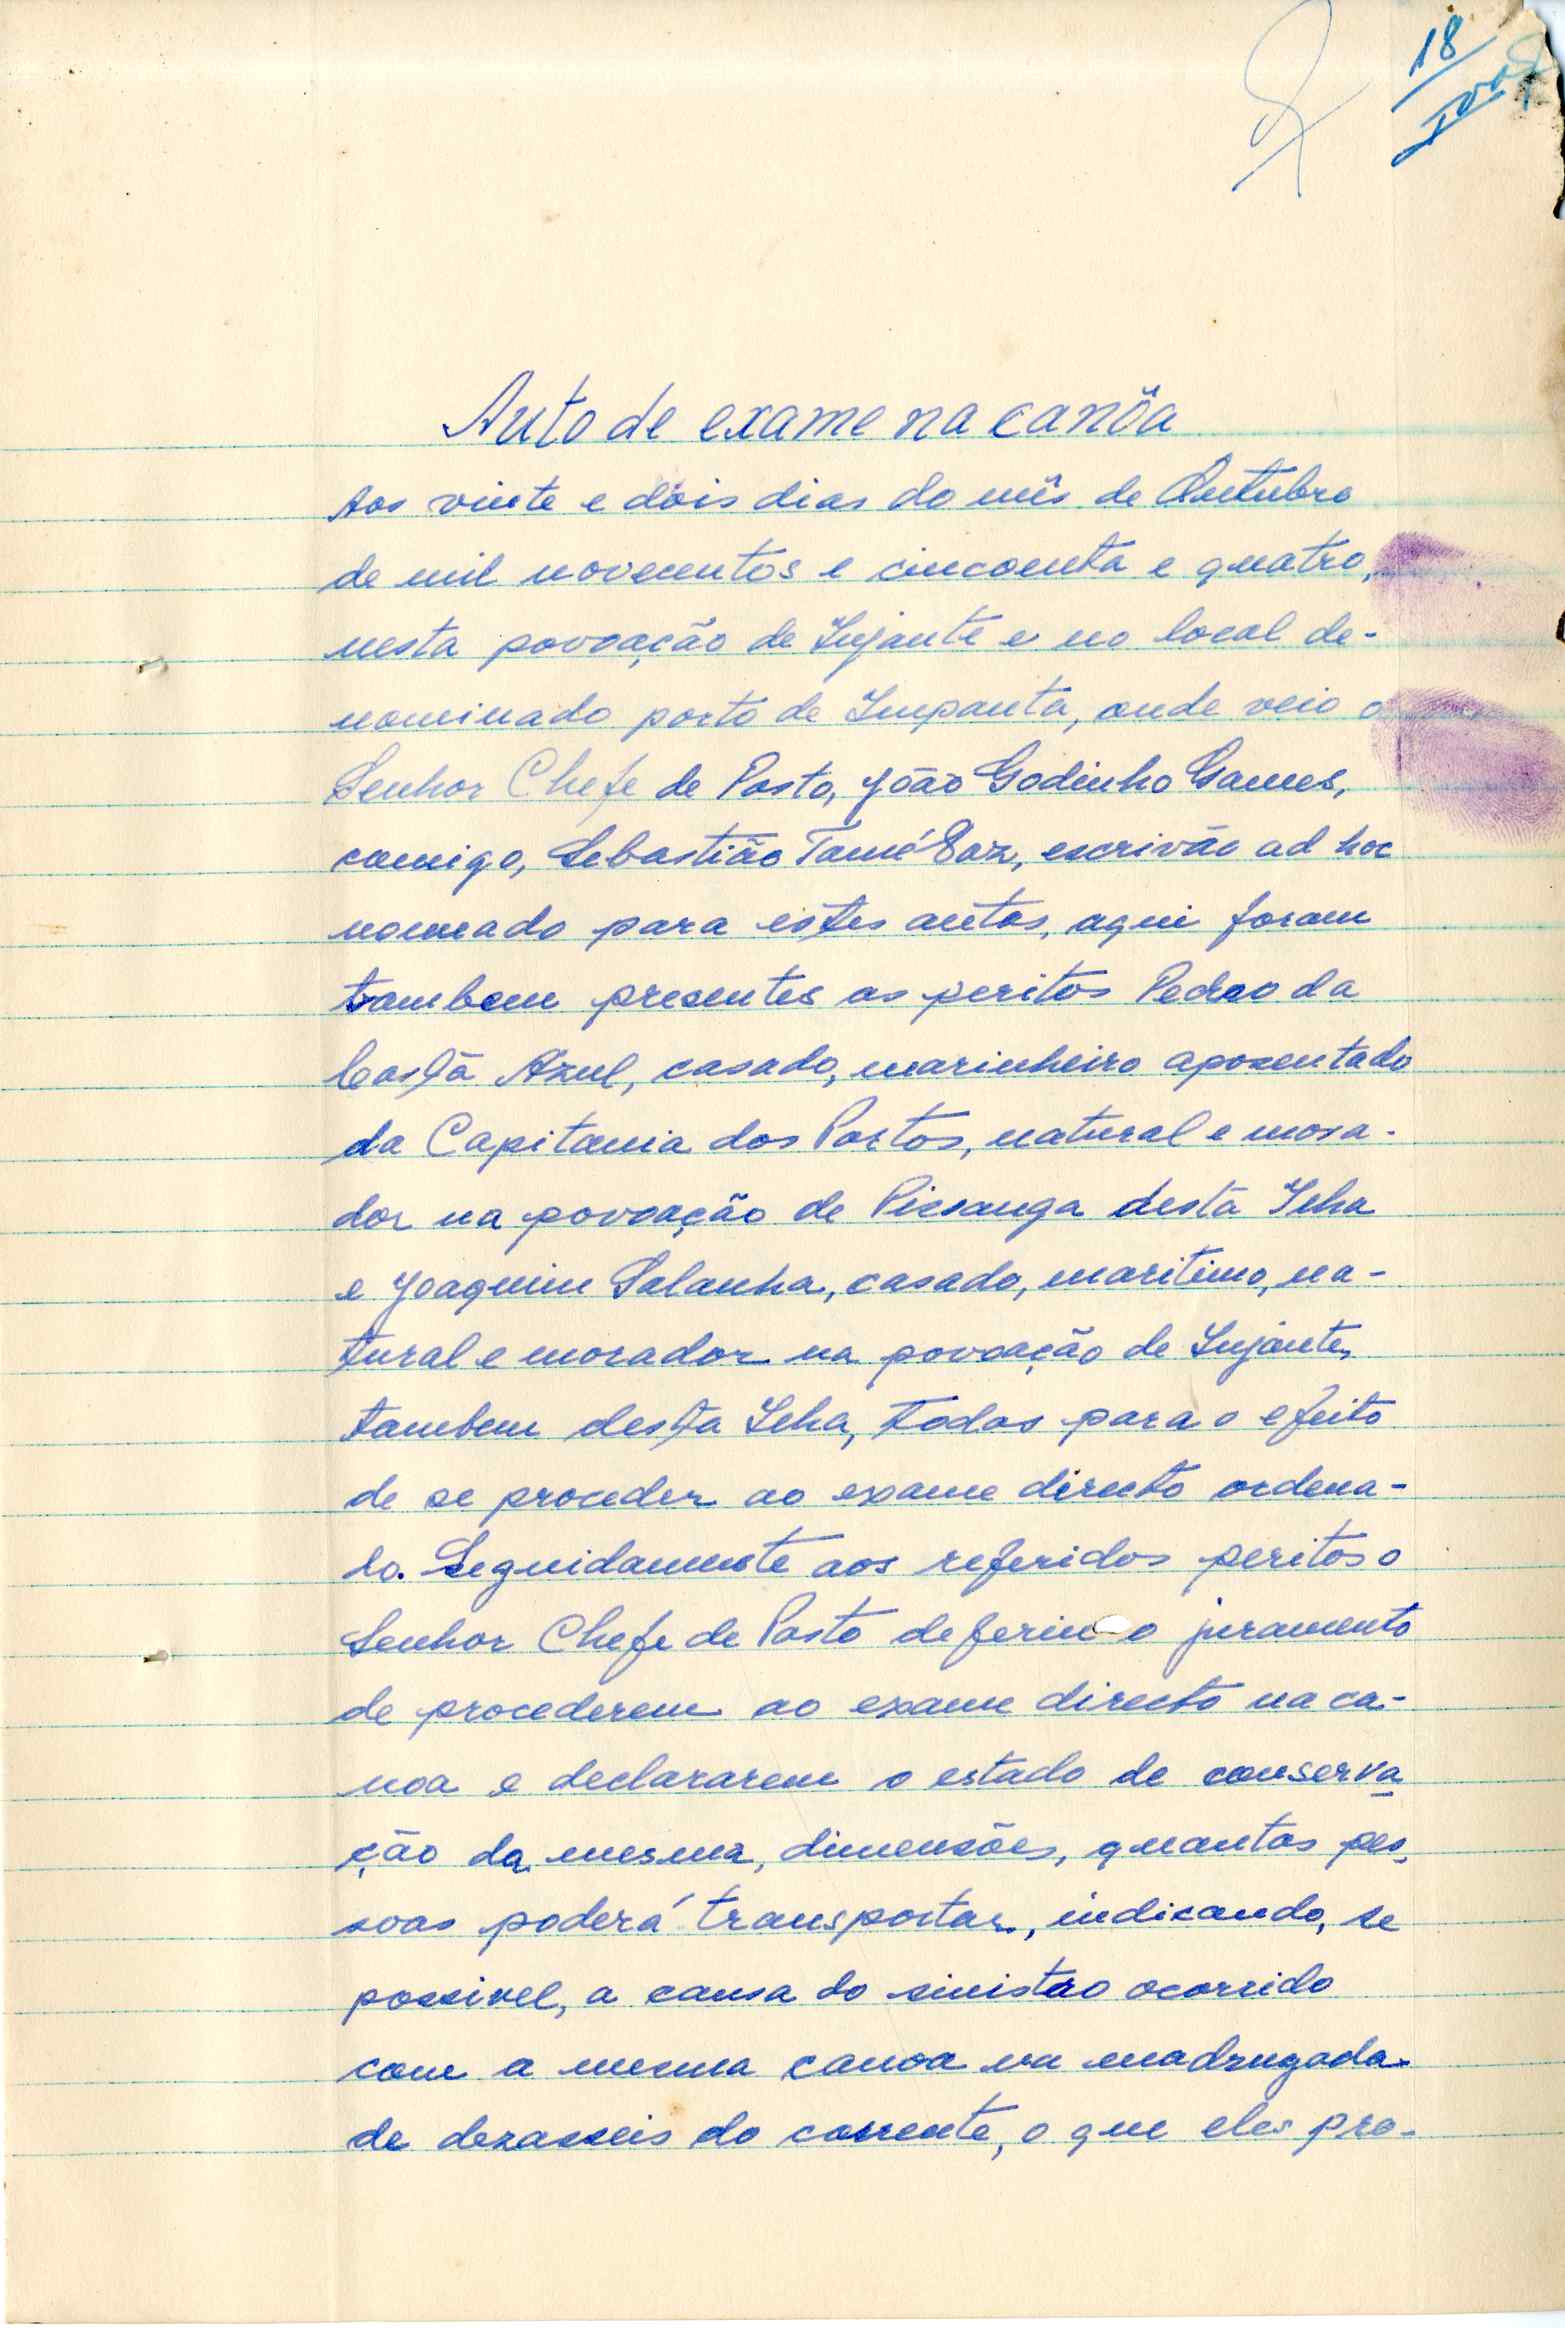 18
Auto de exame na canôa
Aos vinte e dois dias do mês de Outubro
de mil novecentos e cincoenta e quatro,
nesta povoação de Injante e no local de-
nominado porto de Impanta, onde veio o
Senhor Chefe de Posto, João Godinho Gomes,
comigo, Sebastião Tomé Vaz, escrivão ad hoc
nomeado para estes autos, aqui foram
tambem presentes os peritos Pedro da
Costa Azul, casado, marinheiro aposentado
da Capitania dos Portos, natural e mora-
dor na povoação de Picsanga desta Ilha
e Joaquim Salanha, casado, maritimo, na-
tural e morador na povoação de Injante,
tambem desta Ilha, todos para o efeito
de se proceder ao exame directo ordena-
do. Seguidamente aos referidos peritos o
Senhor Chefe de Posto deferiu o juramento
de procederem ao exame directo na ca-
noa e declararem o estado de conserva
ção da mesma, dimensões, quantas pes-
soas poderá transportar, indicando, se
possivel, a causa do sinistro ocorrido
com a mesma canoa na madrugada
de dezasseis do corrente, o que eles pro-